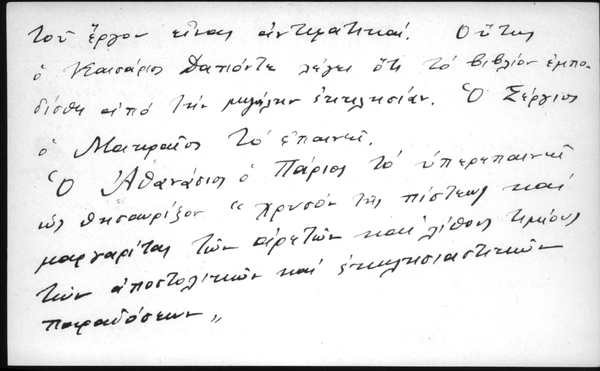 τοῦ ἔργου εἶναι ἀντιφατικαί. Οὕτως
ὁ Καισάριος Δαπόντε λέγει ὅτι τὸ βιβλίον ἐμπο-
δίσθη ἀπό τὴν μεγάλην ἐκκλησίαν. Ὁ Σέργιος
ὁ Μακραῖος τὸ ἐπαινεῖ.
Ὁ Ἀθανάσιος ὁ Πάριος τὸ ὑπερεπαινεῖ
ὡς θησαυρίζον "χρυσόν τῆς πίστεως καί
μαργαρίτας τῶν ἀρετῶν καί λίθους τιμίους
τῶν ἀποστολικῶν καί ἐκκλησιαστικῶν
παραδόσεων"